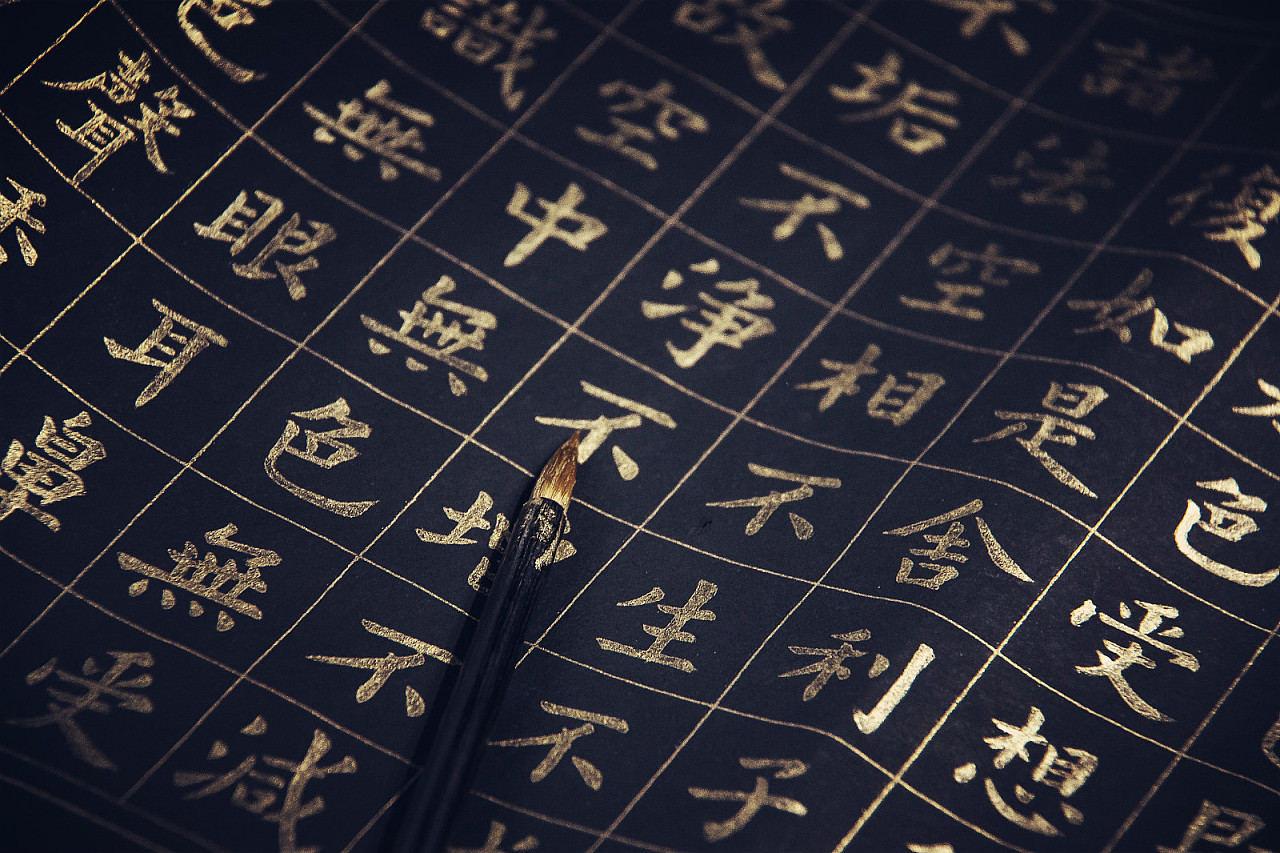 色受想
復如是舍利子
諸法空相不生不
不垢不净不增不减
故空中無色無受
識無眼耳鼻
色聲